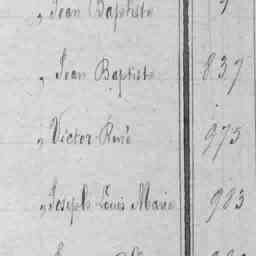 „ Jean Baptiste
„ Jean Baptiste 839
„ Victor René 973
„ Joseph Louis Marie 983